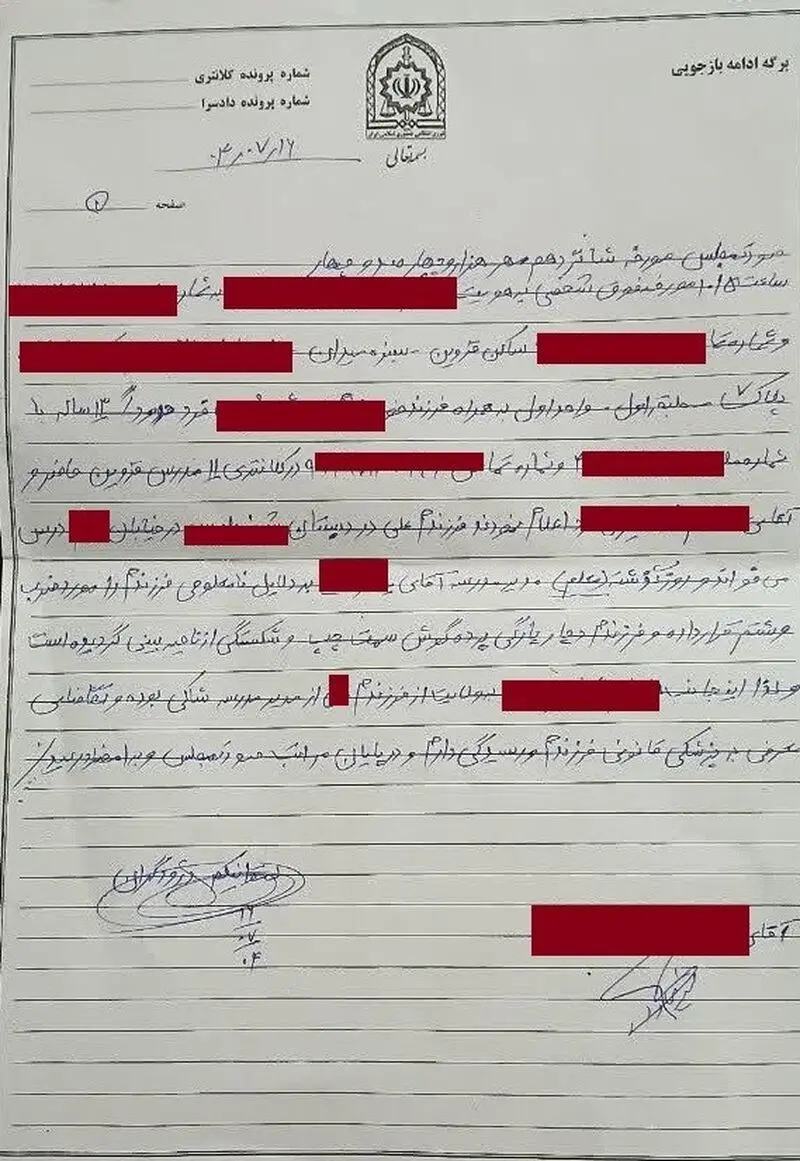 برگه ادامه بازجویی
شماره پرونده کلانتری
شماره پرونده دادسرا
بسمتعالی
۰۴/۰۷/۱۶
صفحه ۱
صورتمجلس مورخه شانزدهم مهر هزار و چهارصد و چهار
ساعت ۱۰/۱۵ مورخه فوق شخصی به هویت به شماره
و شماره تماس ساکن قزوین - سبزه میدان
پلاک ۷ طبقه اول - واحد اول به همراه فرزندش ۱۳ ساله با
شماره و شماره تماس در کلانتری ۱۱ مدرس قزوین حاضر و
آقای اعلام نمودند فرزندم علی در دبستان در خیابان درس
می‌خواند و روز گذشته مدیر مدرسه آقای به دلایل نامعلومی فرزندم را مورد ضرب
و شتم قرار داده و فرزندم دچار پارگی پرده گوش سمت چپ و شکستگی از ناحیه بینی گردیده است
و لذا اینجانب به ولایت از فرزندم از مدیر مدرسه شاکی بوده و تقاضای
معرفی به پزشکی قانونی فرزندم و رسیدگی دارم و در پایان مراتب صورتمجلس و به امضا رسید
آقای
۱۶
۰۷
۰۴